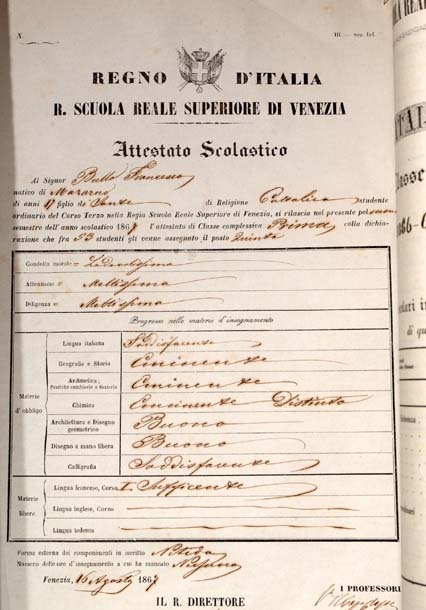 N.
III. — Sez. Inf.
REGNO D'ITALIA
R. SCUOLA REALE SUPERIORE DI VENEZIA
Attestato Scolastico
Al Signor Bullo Francesco
nativo di
di anni 17 figlio de Sante di Religione Cattolica studente
ordinario del Corso Terzo nella Regia Scuola Reale Superiore di Venezia, si rilascia nel presente pel
semestre dell'anno scolastico 1867 l'attestato di Classe complessiva Prima colla dichia-
razione che fra 53 studenti gli venne assegnato il posto Quinto
Condotta morale = Lodevolissima
Attenzione = Moltissima
Diligenza = Moltissima
Progresso nelle materie d'insegnamento
Materie d' obbligo
Lingua italiana Soddisfacente
Geografia e Storia Eminente
Aritmetica; Pratiche cambiarie e daziarie Eminente
Chimica Eminente Distinto
Architettura e Disegno geometrico Buono
Disegno a mano libera Buono
Calligrafia Soddisfacente
Materie libere
Lingua francese, Corso I. Sufficente
Lingua inglese, Corso
Lingua tedesca
Forma esterna dei componimenti in iscritto Nitida
Numero delle ore d'insegnamento a cui ha mancato Nessuna
Venezia, 16 Agosto 1867
I PROFESSORI
IL R. DIRETTORE